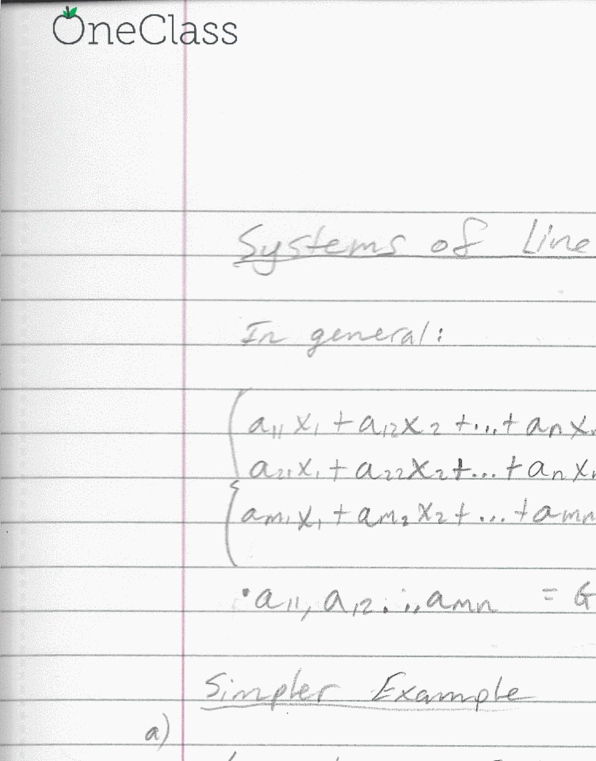 OneClass
Systems of Line
In general:
a₁₁x₁ + a₁₂x₂ + ... + aₙxₙ
a₂₁x₁ + a₂₂x₂ + ... + aₙxₙ
aₘ₁x₁ + aₘ₂x₂ + ... + aₘₙ
• a₁₁, a₁₂ . .,, aₘₙ = G
Simpler Example
a)